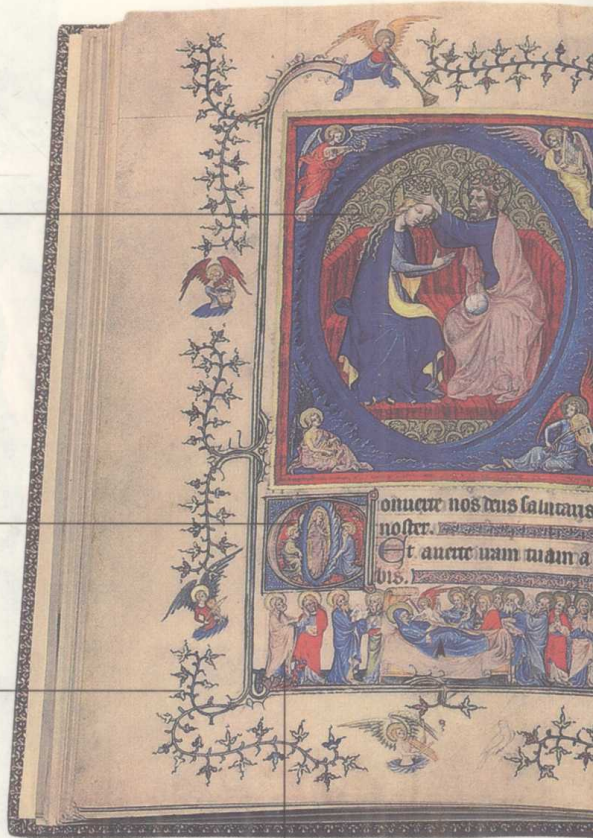 onuerte nos deus salutaris
noster.
Et auerte iram tuam a
bis.